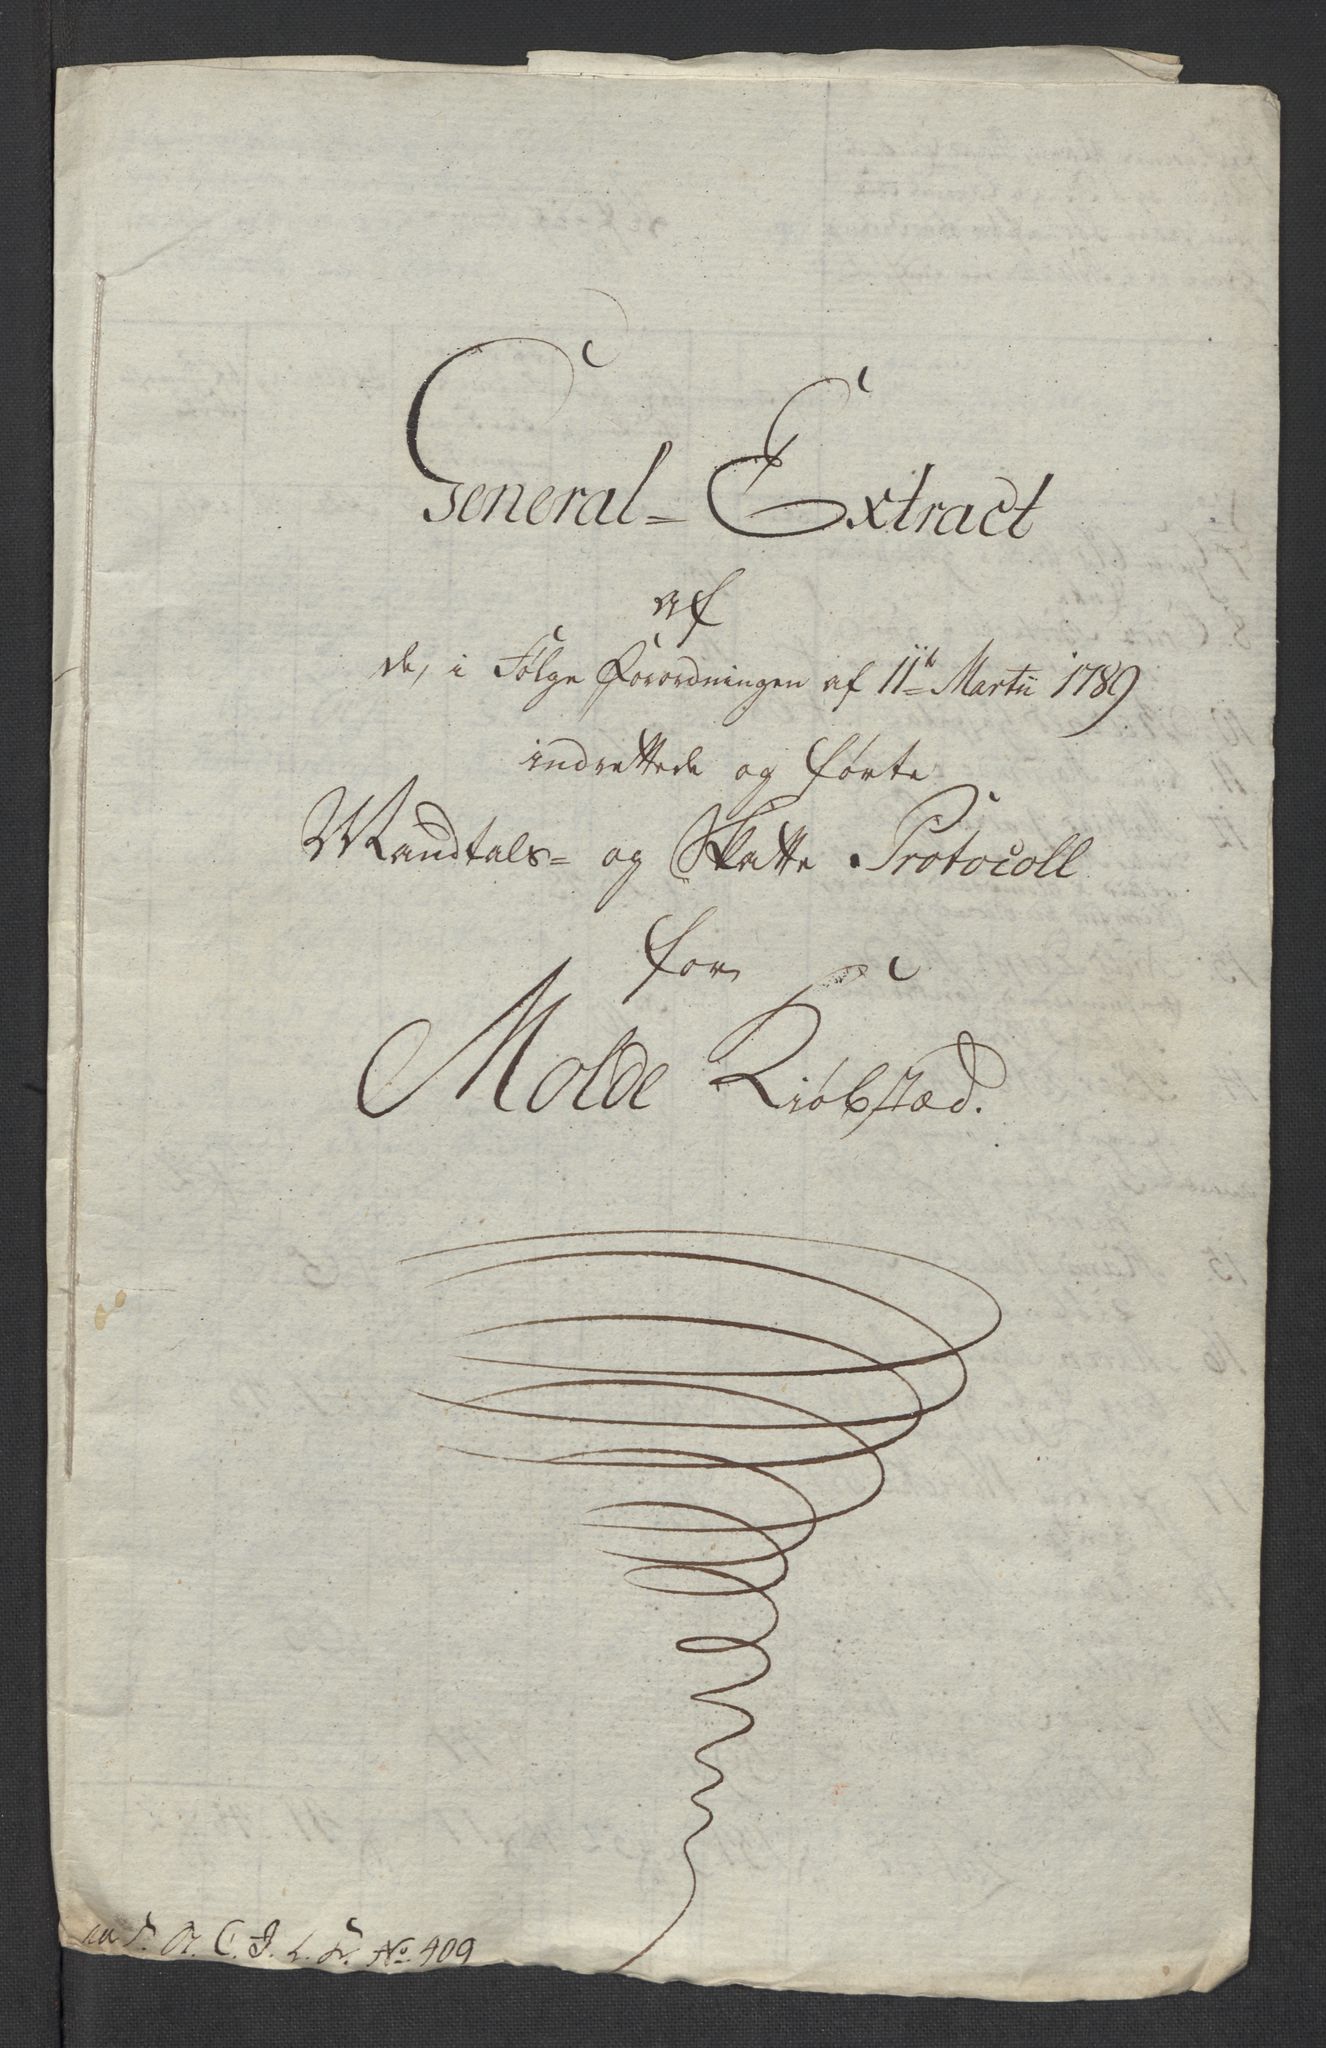 General- Extract
af
de, i Følge Forordningen af 11te Martii 1789
indrettede og førte
Mandtals- og Skatte Protocoll
for
Molde Kiøbstæd.
No. 409